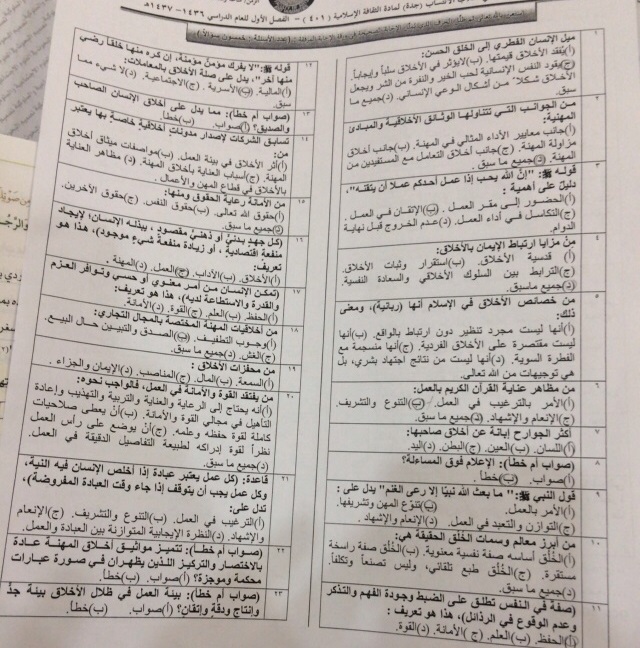 الانتساب (جدة) لمادة الثقافة الإسلامية (٤٠١) – الفصل الأول للعام الدراسي ١٤٣٦-١٤٣٧هـ
١
ميل الإنسان الفطري إلى الخلق الحسن:
(أ)يُفقد الأخلاق قيمتها. (ب)لايؤثر في الأخلاق سلباً وإيجاباً.
(ج)يقود النفس الإنسانية لحب الخير والنفرة من الشر ويجعل
الأخلاق شكلاً من أشكال الوعي الإنساني. (د)جميع ما
سبق.
٢
من الجوانب التي تتناولها الوثائق الأخلاقية والمبادئ
المهنية:
(أ)جانب معايير الأداء المثالي في المهنة. (ب)جانب أخلاق
مزاولة المهنة. (ج)جانب أخلاق التعامل مع المستفيدين من
المهنة. (د)جميع ما سبق.
٣
قوله ﷺ: "إنَّ الله يحب إذا عمل أحدكم عملا أن يتقنه"،
دليلٌ على أهمية :
(أ)الحضور إلى مقر العمل. (ب)الإتقان في العمل.
(ج)التكاسل في أداء العمل. (د)عدم الخروج قبل نهاية
الدوام.
٤
مِنْ مزايا ارتباط الإيمان بالأخلاق:
(أ) قدسية الأخلاق. (ب)استقرار وثبات الأخلاق.
(ج)الترابط بين السلوك الأخلاقي والسعادة النفسية.
(د)جميع ماسبق.
٥
من خصائص الأخلاق في الإسلام أنها (ربانية)، ومعنى
ذلك:
(أ)أنها ليست مجرد تنظير دون ارتباط بالواقع. (ب)أنها
ليست مقتصرة على الأخلاق الفردية. (ج)أنها منسجمة مع
الفطرة السوية. (د)أنها ليست من نتائج اجتهاد بشري، بل
هي توجيهات من الله تعالى.
٦
من مظاهر عناية القرآن الكريم بالعمل:
(أ)الأمر بالترغيب في العمل. (ب)التنوع والتشريف.
(ج)الإنعام والإشهاد. (د)جميع ما سبق.
٧
أكثر الجوارح إبانة عن أخلاق صاحبها:
(أ)اللسان. (ب)العين. (ج)البطن. (د)اليد.
٨
(صواب أم خطأ): الإعلام فوق المساءلة؟
(أ)صواب. (ب)خطأ.
٩
قول النبي ﷺ: " ما بعث الله نبيًا إلا رعى الغنم" يدل على :
(أ)الأمر بالعمل. (ب)تنوع المهن وتشريفها.
(ج)التوازن والتعبد في العمل. (د)الإنعام والإشهاد.
١٠
من أبرز معالم وسمات الخُلق الحقيقة هي:
(أ)الخُلُق أساسه صفة نفسية معنوية. (ب)الخُلُق صفة راسخة
مستقرة. (ج)الخُلُق طبع تلقائي، وليس تصنعاً وتكلفاً.
(د)جميع ما سبق.
١١
(صفة في النفس تطلق على الضبط وجودة الفهم والتذكر
وعدم الوقوع في الرذائل)، هذا هو تعريف :
(أ)الحفظ. (ب)العلم. (ج)الأمانة. (د)القوة.
١٢
قوله ﷺ:"لا يفرك مؤمنٌ مؤمنة، إن كره منها خلقاً رضي
منها آخر"، يدل على صلة الأخلاق بالمعاملات:
(أ)المالية. (ب)الأسرية. (ج)الاجتماعية. (د)لا شيء مما
سبق.
١٣
(صواب أم خطأ): مما يدل على أخلاق الإنسان الصاحب
والصديق؟ (أ)صواب. (ب)خطأ.
١٤
تسابق الشركات لإصدار مدونات أخلاقية خاصة بها يعتبر
من:
(أ)أثر الأخلاق في بيئة العمل. (ب)مواصفات ميثاق أخلاق
المهنة. (ج)أسباب العناية بأخلاق المهنة. (د) مظاهر العناية
بالأخلاق في قطاع المهن والأعمال.
١٥
من الأمانة رعاية الحقوق ومنها:
(أ)حقوق الله تعالى. (ب)حقوق النفس. (ج)حقوق الآخرين.
(د)جميع ما سبق.
١٦
(كل جهدٍ بدنيٍّ أو ذهنيٍّ مقصودٍ ، يبذله الإنسان؛ لإيجاد
منفعة اقتصاديةٍ ، أو زيادة منفعة شيءٍ موجود)، هذا هو
تعريف:
(أ)الأخلاق. (ب)الآداب. (ج)العمل. (د)المهنة.
١٧
(تمكن الإنسان من أمر معنوي أو حسي وتوافر العزم
والقدرة والاستطاعة لديه)، هذا هو تعريف:
(أ)الحفظ. (ب)العلم. (ج)القوة. (د)الأمانة.
١٨
من أخلاقيات المهنة المختصة بالمجال التجاري:
(أ)وجوب التطفيف. (ب)الصدق والتبيين حال البيع.
(ج)الغش. (د)جميع ما سبق.
١٩
من محفزات الأخلاق :
(أ)السمعة. (ب)المال. (ج)المناصب. (د)الإيمان والجزاء.
٢٠
من يفتقد القوة والأمانة في العمل، فالواجب نحوه:
(أ)أنه يحتاج إلى الرعاية والعناية والتربية والتهذيب وإعادة
التأهيل في مجالي القوة والأمانة. (ب)أن يعطى صلاحيات
كاملة لقوة حفظه وعلمه. (ج)أن يوضع على رأس العمل
نظراً لقوة إدراكه لطبيعة التفاصيل الدقيقة في العمل.
(د)جميع ما سبق.
٢١
قاعدة: (كل عمل يعتبر عبادة إذا أخلص الإنسان فيه النية،
وكل عمل يجب أن يتوقف إذا جاء وقت العبادة المفروضة)،
تدل على:
(أ)الترغيب في العمل. (ب)التنوع والتشريف. (ج)الإنعام
والإشهاد. (د)النظرة الإيجابية المتوازنة بين العبادة والعمل.
٢٢
(صواب أم خطأ): تتميز مواثيق أخلاق المهنة عادة
بالاختصار والتركيز اللذين يظهران في صورة عبارات
محكمة وموجزة؟ (أ)صواب. (ب)خطأ.
٢٣
(صواب أم خطأ): بيئة العمل في ظلال الأخلاق بيئة جدٍّ
وإنتاج ودقةٍ وإتقان؟ (أ)صواب. (ب)خطأ.